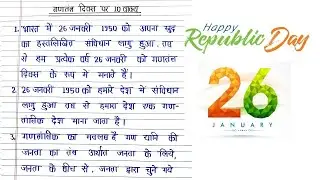 गणतंत्र दिवस पर 10 वाक्य
1. भारत में 26 जनवरी 1950 को अपना खुद
का हस्तलिखित संविधान लागु हुआ. तब
से हम प्रत्येक वर्ष 26 जनवरी को गणतंत्र
दिवस के रूप में मनाते हैं।
2. 26 जनवरी 1950 को हमारे देश में संविधान
लागु हुआ तब से हमारा देश एक गण-
तांत्रिक देश माना जाता है।
3. गणतांत्रिक का मतलब है गण यानि की
जनता का तंत्र अर्थात जनता के लिये,
जनता के बीच से, जनता द्वारा चुने गये
Happy
Republic Day
26
JANUARY